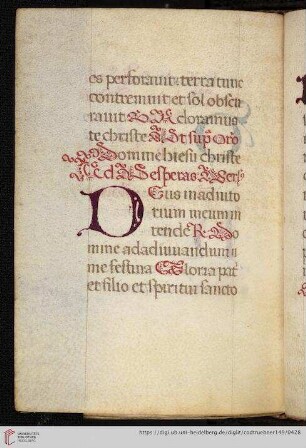 os perforavit: terra tunc
contremuit et sol obscu
ravit V A doramus
te christe R Ut sup Oro
Domine hiesu christe
Ad Vesperas Vers
Deus in adiuto
rium meum in
tende R Do
mine ad adiuvandum
me festina Gloria pat
et filio et spiritui sancto
UNIVERSITÄTS-
BIBLIOTHEK
HEIDELBERG
https://digi.ub.uni-heidelberg.de/diglit/codtruebner149/0426